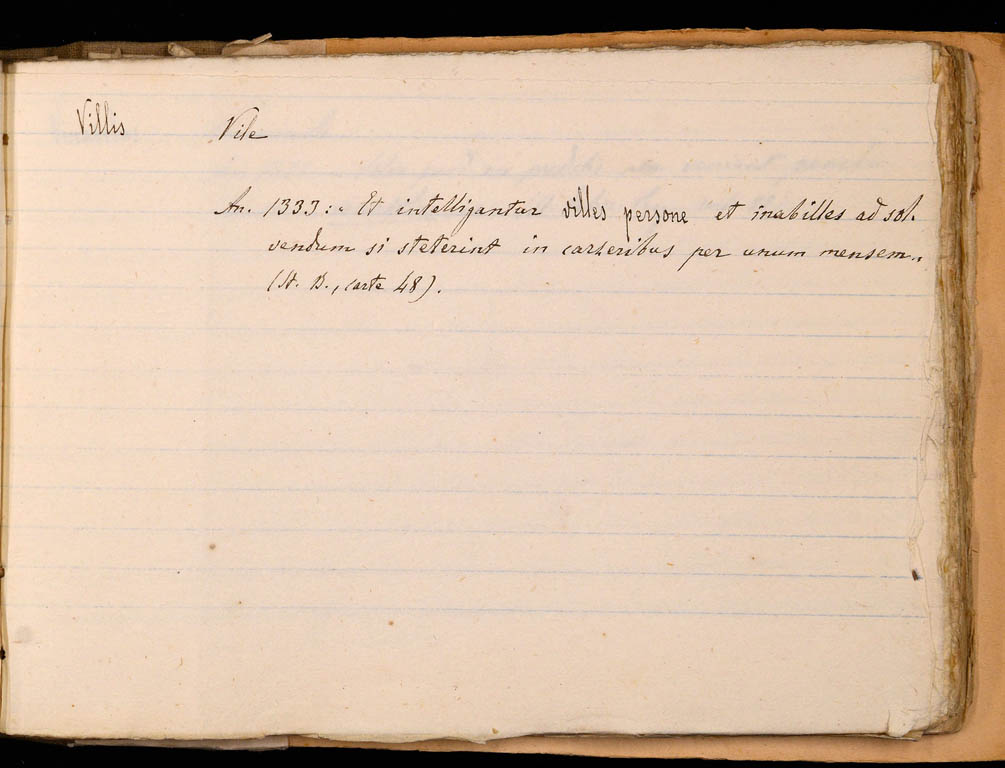 Villis Vile
An. 1333: „ Et intelligantur villes persone et inabilles ad sol-
vendum si steterint in carzeribus per unum mensem „
(St. B., carte 48).